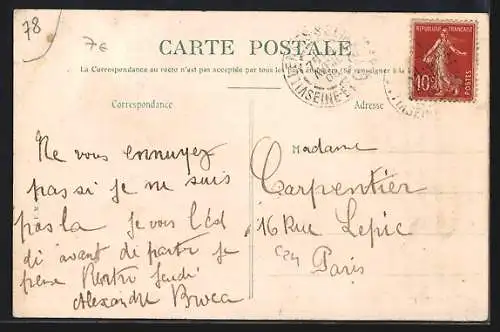 78
7e
CARTE POSTALE
La Correspondance au recto n'est pas acceptée par tous les
Correspondance
Adresse
REPUBLIQUE FRANÇAISE
10c
POSTES
Ne vous ennuyez
pas si je ne suis
pas la je vous l'éd
di avant de partir je
pense Rentre Jeudi
Alexandre Broca
Madame
Carpentier
16 Rue Lepic
Paris